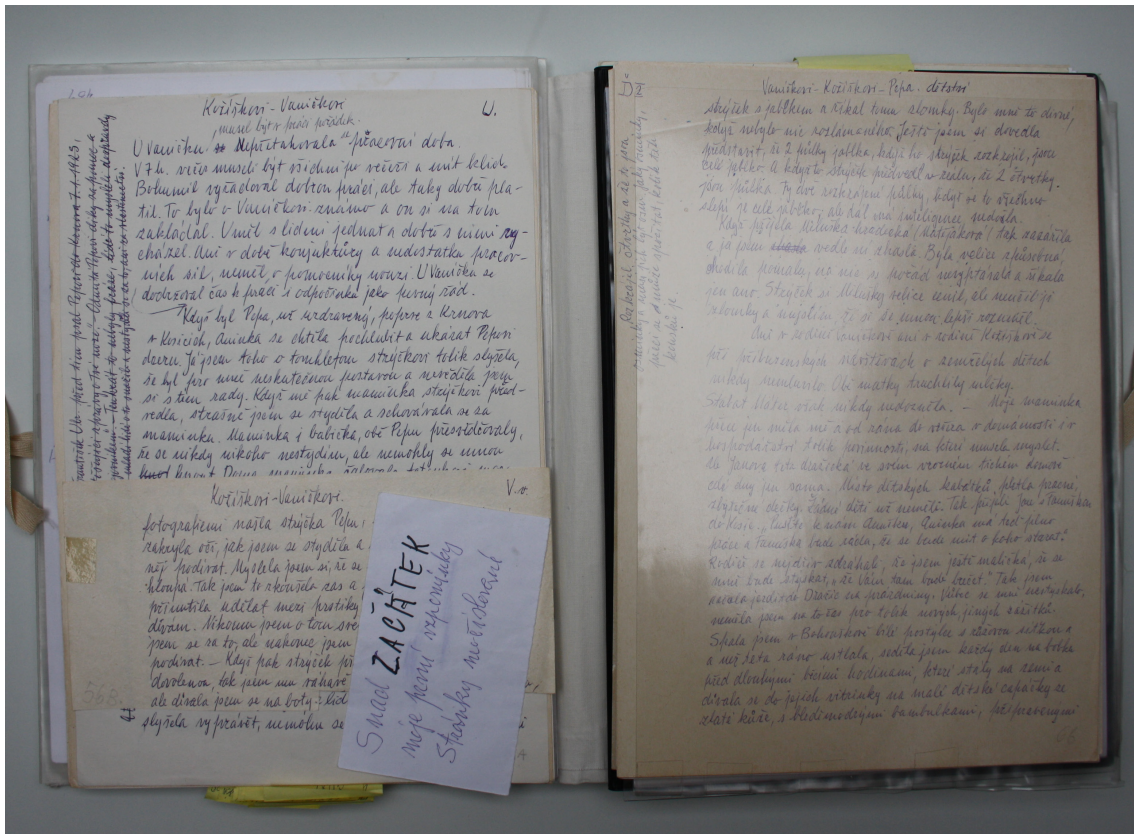 Kožíškovi - Vaničkovi
U.
musel být v práci pořádek.
U Vaničků se nepřetahovala pracovní doba.
V 7 h. večer museli být všichni po večeři a mít klid.
Bohumil vyžadoval dobrou práci, ale taky dobře pla-
til. To bylo o Vaničkovi známo a on si na tom
zakládal. Uměl s lidmi jednat a dobře s nimi vy-
cházel. Ani v době konjuktůry a nedostatku pracov-
ních sil, neměl o pomocníky nouzi. U Vaničků se
dodržoval čas k práci i odpočinku jako pevný řád.
Když byl Pepa, už uzdravený, poprve z Krnova
v Kosicích, Aninka se chtěla pochlubit a ukázat Pepovi
dceru. Já jsem toho o tomhletom strýčkovi tolik slyšela,
že byl pro mně neskutečnou postavou a nevěděla jsem
si s tím rady. Když mě pak maminka strýčkovi před-
vedla, strašně jsem se styděla a schovávala se za
maminku. Maminka i babička, obě Pepu přesvědčovaly,
že se nikdy nikoho nestydím, ale nemohly se mnou
hnout. Doma maminka
Kožíškovi - Vaničkovi.
V. v.
fotografiemi našla strýčka Pepu,
zakryla oči, jak jsem se styděla a
něj podívat. Myslela jsem si, že se
hloupá. Tak jsem to zkoušela zas a
přinutila udělat mezi prstíky
dívám. Nikomu jsem o tom
jsem se za to, ale nakonec jsem
podívat. - Když pak strýček
dovolenou, tak jsem mu
ale dívala jsem se na boty
slyšela vyprávět, nemohu se
568.
Snad ZAČÁTEK
moje první vzpomínky
Stránky nečíslované
Vaničkovi - Kožíškovi - Pepa. dětství
strýček s jablkem a říkal tomu zlomky. Bylo mně to divný,
když nebylo nic rozlámaného. Ještě jsem si dovedla
představit, že 2 půlky jablka, když ho strýček rozkrojil, jsou
celé jablko. A když to strýček předvedl v zeleru, že 2 čtvrtky
jsou půlka. Ty dvě rozkrájený půlky, když se to všechno
složí je celé jablko, ale dál má inteligence nedošla.
Když přijela Miluška hradecká (Matoušková) tak zazářila
a já jsem vedle ní zhasla. Byla velice způsobná,
chodila pomalu, na nic se pořád nevyptávala a říkala
jen ano. Strýček si Milušky velice cenil, ale neučil ji
zlomky a myslím že si se mnou lepší rozuměl.
Ani v rodině Vaničkově ani v rodině Kožíškově se
při příbuzenských návštěvách o zemřelých dětech
nikdy nemluvilo. Obě matky truchlily mlčky.
Stabat Mater však nikdy nedozněla. - Moje maminka
přece jen měla mě a od rána do večera v domácnosti i v
hospodářství tolik povinností, na které musela myslet.
Ale Janova teta dračická ve svém vzorném tichém domově
celé dny jen sama. Místo dětských kabátků, pletla pracné,
zbytečné dečky. Žádné děti už neměli. Tak přijeli Jan s Fanuškou
do Kosic. „Pusťte k nám Aničku, Aninka má teď plno
práce a Fanuška bude ráda, že se bude mít o koho starat."
Rodiče se nejdřív zdráhali, že jsem ještě maličká, že se
mně bude stýskat, „že Vám tam bude brečet." Tak jsem
začala jezdit do Dračic na prázdniny. Vůbec se mně nestýskalo,
neměla jsem na to čas pro tolik nových, jiných zážitků.
Spala jsem v Bohouškově bílé postýlce s růžovou sítkou a
a než teta ráno ustlala, seděla jsem každý den na bobku
před dlouhými bicími hodinami, které stály na zemi a
dívala se do jejich vitrinky na malé dětské capáčky ze
zlaté kůže, s bleděmodrými bambulkami, připravenými
66